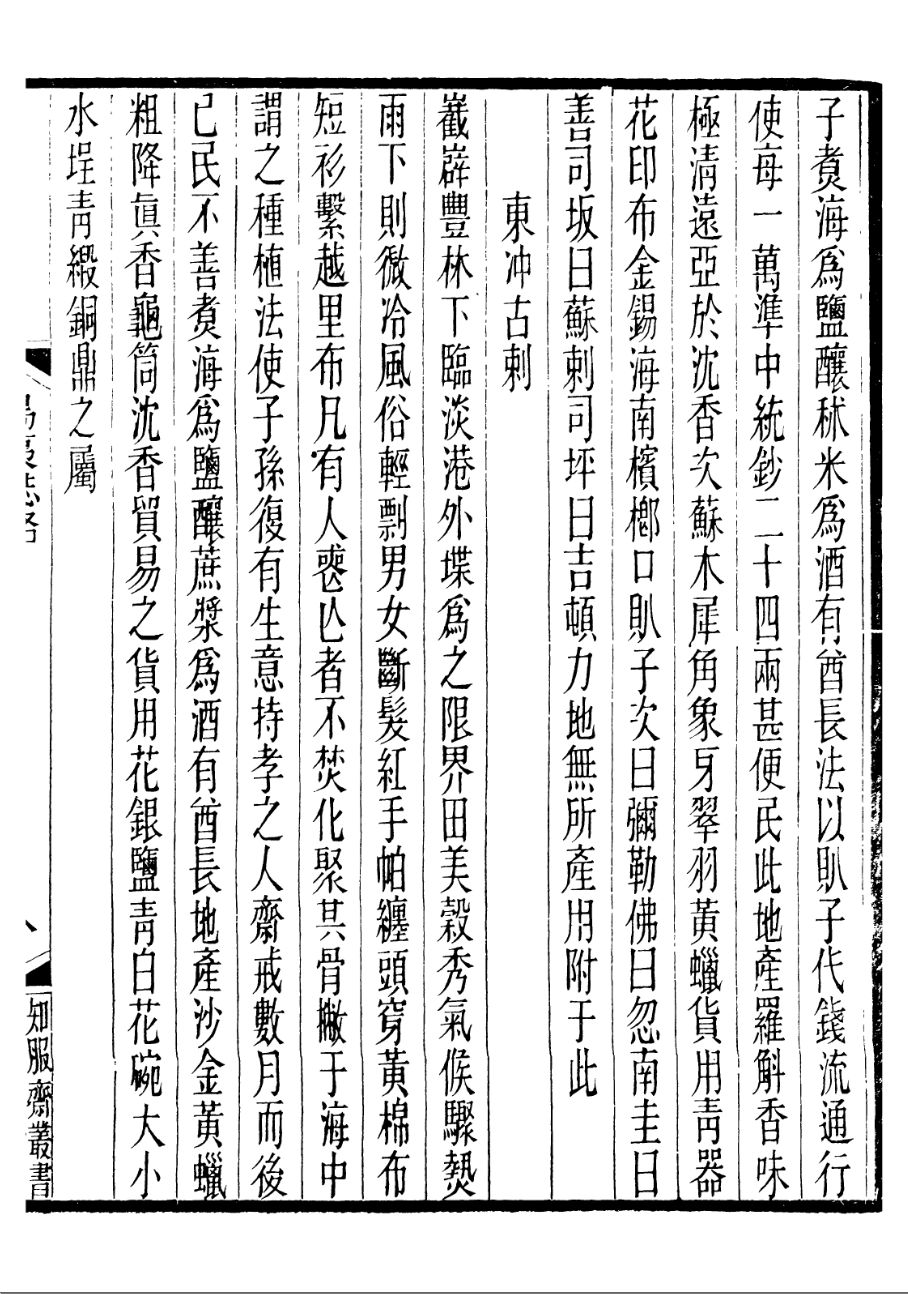 子煑海爲鹽釀秫米爲酒有酋長法以𧴩子代錢流通行
使每一萬準中統鈔二十四兩甚便民此地產羅斛香味
極清遠亞於沈香次蘇木犀角象牙翠羽黃蠟貨用青器
花印布金錫海南檳榔口𧴩子次曰彌勒佛曰忽南圭曰
善司坂曰蘇剌司坪曰吉頓力地無所產用附于此
東冲古剌
嶻嶭豐林下臨淡港外堞爲之限界田美穀秀氣候驟熱
雨下則微冷風俗輕剽男女斷髮紅手帕纏頭穿黃棉布
短衫繫越里布凡有人喪亾者不焚化聚其骨撇于海中
謂之種植法使子孫復有生意持孝之人齋戒數月而後
已民不善煑海爲鹽釀蔗漿爲酒有酋長地產沙金黃蠟
粗降眞香龜筒沈香貿易之貨用花銀鹽青白花碗大小
水埕青緞銅鼎之屬
島夷志略
知服齋叢書